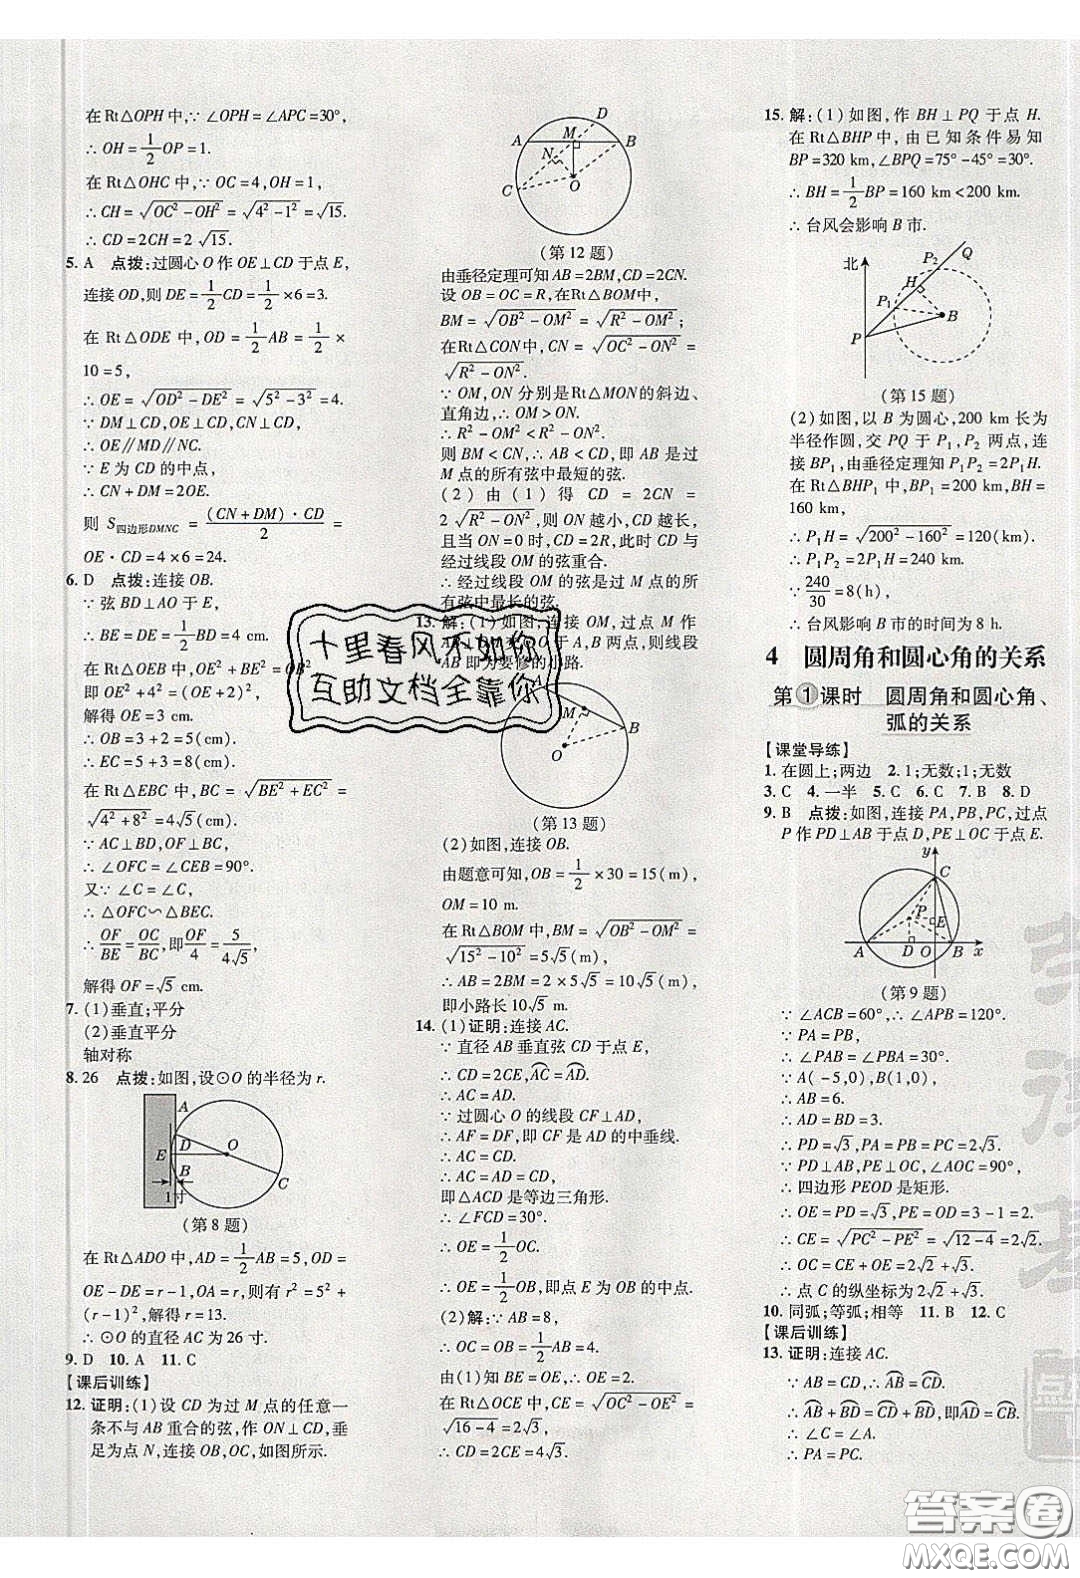 在 Rt△OPH 中,∵ ∠OPH = ∠APC = 30°,
∴ OH = 1/2 OP = 1.
在 Rt△OHC 中,∵ OC = 4,OH = 1,
∴ CH = √(OC² - OH²) = √(4² - 1²) = √15.
∴ CD = 2CH = 2√15.
5. A 点拨:过圆心 O 作 OE⊥CD 于点 E,
连接 OD,则 DE = 1/2 CD = 1/2 × 6 = 3.
在 Rt△ODE 中,OD = 1/2 AB = 1/2 ×
10 = 5,
∴ OE = √(OD² - DE²) = √(5² - 3²) = 4.
∵ DM⊥CD,OE⊥CD,CN⊥CD,
∴ OE∥MD∥NC.
∵ E 为 CD 的中点,
∴ CN + DM = 2OE.
则 S四边形DMNC = (CN + DM)·CD/2 =
OE·CD = 4 × 6 = 24.
6. D 点拨:连接 OB.
∵ 弦 BD⊥AO 于 E,
∴ BE = DE = 1/2 BD = 4 cm.
在 Rt△OEB 中,OE² + BE² = OB²,
即 OE² +
解得 OE = 3 cm.
∴ OB = 3 + 2 = 5(cm).
∴ EC = 5 + 3 = 8(cm).
在 Rt△EBC 中,BC = √(BE² + EC²) =
√(4² + 8²) = 4√5(cm).
∵ AC⊥BD,OF⊥BC,
∴ ∠OFC = ∠CEB = 90°.
又∵ ∠C = ∠C,
∴ △OFC∽△BEC.
∴ OF/BE = OC/BC,即 OF/4 = 5/4√5,
解得 OF = √5 cm.
7. (1)垂直;平分
(2)垂直平分
轴对称
8. 26 点拨:如图,设⊙O 的半径为 r.
A
D
O
E
B
C
1寸
(第 8 题)
在 Rt△ADO 中,AD = 1/2 AB = 5,OD =
OE - DE = r - 1,OA = r,则有 r² = 5² +
(r - 1)²,解得 r = 13.
∴ ⊙O 的直径 AC 为 26 寸.
9. D 10. A 11. C
【课后训练】
12. 证明:(1)设 CD 为过 M 点的任意一
条不与 AB 重合的弦,作 ON⊥CD,垂
足为点 N,连接 OB,OC,如图所示.
D
M
A
B
N
C
O
(第 12 题)
由垂径定理可知 AB = 2BM,CD = 2CN.
设 OB = OC = R,在Rt△BOM中,
BM = √(OB² - OM²) = √(R² - OM²);
在Rt△CON中,CN = √(OC² - ON²)
= √(R² - ON²).
∵ OM,ON 分别是Rt△MON的斜边、
直角边,∴ OM > ON.
∴ R² - OM² < R² - ON².
则 BM < CN,∴ AB < CD,即 AB 是过
M 点的所有弦中最短的弦.
(2)由(1)得 CD = 2CN =
2√(R² - ON²),∴ ON 越小,CD 越长,
且当 ON = 0 时,CD = 2R,此时 CD 与
经过线段 OM 的弦重合.
∴ 经过线段 OM 的弦是过 M 点的所
有弦中最长的弦.
13. 解:(1)如图,连接OM,过点 M 作
于 A,B两点,则线段
AB 即为要修的小路.
十里春风不如你
互助文档全靠你
A
M
B
O
(第 13 题)
(2)如图,连接 OB.
由题意可知,OB = 1/2 × 30 = 15(m),
OM = 10 m.
在 Rt△BOM 中,BM = √(OB² - OM²) =
√(15² - 10²) = 5√5(m).
∴ AB = 2BM = 2 × 5√5 = 10√5(m),
即小路长 10√5 m.
14. (1)证明:连接 AC.
∵ 直径 AB 垂直弦 CD 于点 E,
∴ CD = 2CE,A͡C = A͡D.
∴ AC = AD.
∵ 过圆心 O 的线段 CF⊥AD,
∴ AF = DF,即 CF 是 AD 的中垂线.
∴ AC = CD.
∴ AC = AD = CD,
即△ACD 是等边三角形.
∴ ∠FCD = 30°.
∴ OE = 1/2 OC.
∴ OE = 1/2 OB,即点 E 为 OB 的中点.
(2)解:∵ AB = 8,
∴ OC = 1/2 AB = 4.
由(1)知 BE = OE,∴ OE = 2.
在Rt△OCE中,CE = √(OC² - OE²) =
√(16 - 4) = 2√3,
∴ CD = 2CE = 4√3.
15. 解:(1)如图,作 BH⊥PQ 于点 H.
在Rt△BHP中,由已知条件易知
BP = 320 km,∠BPQ = 75° - 45° = 30°.
∴ BH = 1/2 BP = 160 km < 200 km.
∴ 台风会影响 B 市.
北
P₂
Q
H
P₁
B
P
(第 15 题)
(2)如图,以 B 为圆心,200 km 长为
半径作圆,交 PQ 于 P₁,P₂ 两点,连
接 BP₁,由垂径定理知 P₁P₂ = 2P₁H.
在 Rt△BHP₁ 中,BP₁ = 200 km,BH =
160 km,
∴ P₁H = √(200² - 160²) = 120(km).
∴ P₁P₂ = 2P₁H = 240 km.
∵ 240/30 = 8(h),
∴ 台风影响 B 市的时间为 8 h.
4 圆周角和圆心角的关系
第①课时 圆周角和圆心角、
弧的关系
【课堂导练】
1. 在圆上;两边 2. 1;无数;1;无数
3. C 4. 一半 5. C 6. C 7. B 8. D
9. B 点拨:如图,连接 PA,PB,PC,过点
P 作 PD⊥AB 于点 D,PE⊥OC 于点 E.
y
C
P
E
A
D
O
B
x
(第 9 题)
∵ ∠ACB = 60°,∴ ∠APB = 120°.
∵ PA = PB,
∴ ∠PAB = ∠PBA = 30°.
∵ A(-5,0),B(1,0),
∴ AB = 6.
∴ AD = BD = 3.
∴ PD = √3,PA = PB = PC = 2√3.
∵ PD⊥AB,PE⊥OC,∠AOC = 90°,
∴ 四边形 PEOD 是矩形.
∴ OE = PD = √3,PE = OD = 3 - 1 = 2.
∴ CE = √(PC² - PE²) = √(12 - 4) = 2√2.
∴ OC = CE + OE = 2√2 + √3.
∴ 点 C 的纵坐标为 2√2 + √3.
10. 同弧;等弧;相等 11. B 12. C
【课后训练】
13. 证明:连接 AC.
∵ AB = CD,∴ A͡B = C͡D.
∴ A͡B + B͡D = C͡D + B͡D,即A͡D = C͡B.
∴ ∠C = ∠A.
∴ PA = PC.
答案圈
MXQE.COM